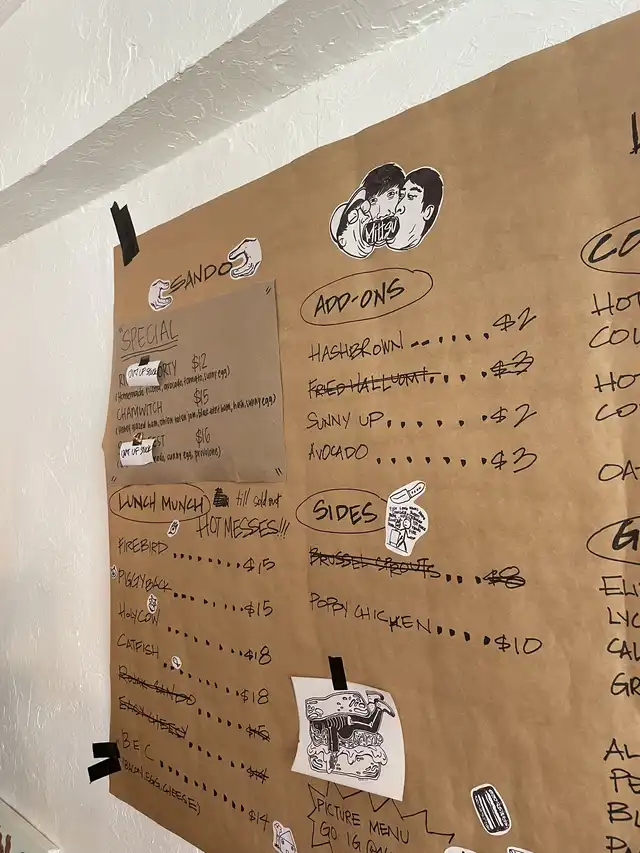 SANDO
"SPECIAL
OUT OF STOCK
RTY $12
(Homemade pizza, avocado, tomato, sunny egg)
CHAMWITCH $15
OUT OF STOCK
EST $16
sunny egg, provolone)
LUNCH MUNCH till sold out
HOT MESSES!!!
FIREBIRD ....... $15
PIGGYBACK ....... $15
HOLYCOW ....... $18
CATFISH ....... $18
EASY CHEESY ....... $4
B.E.C ....... $14
(BACON, EGG, CHEESE)
Mitzy
ADD-ONS
HASHBROWN ....... $2
FRIED HALLOUMI ....... $3
SUNNY UP ..... $2
AVOCADO ..... $3
SIDES
BRUSSEL SPROUTS .... $8
POPBY CHICKEN .... $10
PICTURE MENU
GO IG
CO
HOT
COL
HOT
CO
OAT
G
ELI
LYC
CAL
GR
AL
PE
BL